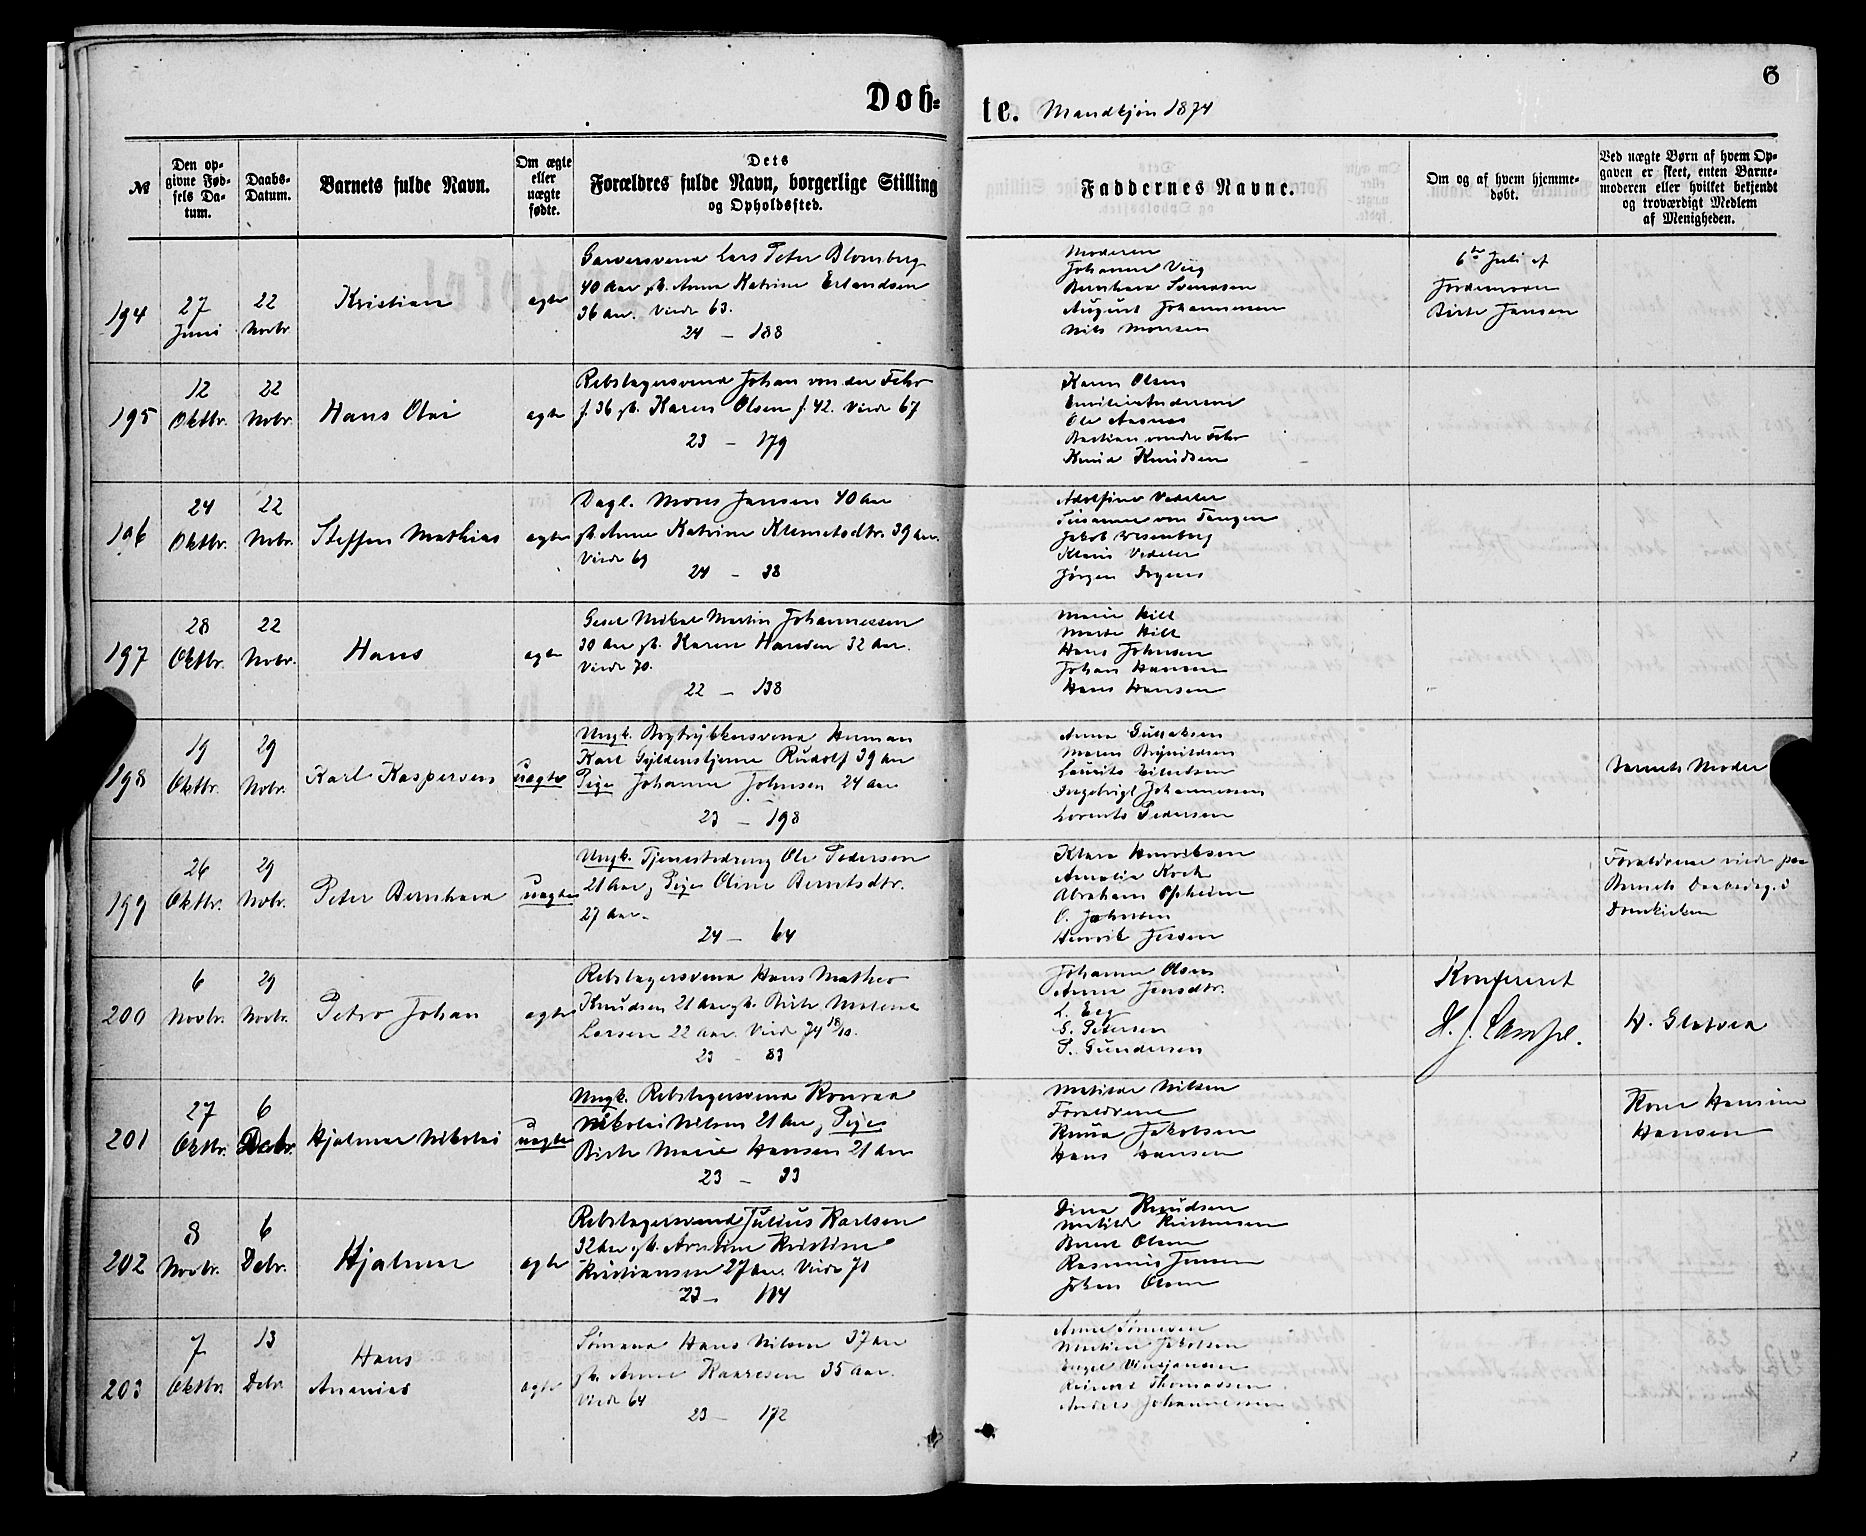 Døb-
te. Mandkjøn 1874
6
№
Den op-
givne Fød-
sels Da-
tum.
Daabs-
Datum.
Barnets fulde Navn.
Om ægte
eller
uægte
fødte.
Dets
Forældres fulde Navn, borgerlige Stilling
og Opholdssted.
Faddernes Navne.
Om og af hvem hjemme-
døbt.
Ved uægte Børn af hvem Op-
gaven er skeet, enten Barne-
moderen eller hvilket bekjendt
og troværdigt Medlem
af Menigheden.
194
27
Juni
22
Novbr
Kristian
ægte
Garversvend Lars Peter Blomberg
40 Aar gb. Anna Katrine Erlandsen
36 Aar. Viede 63.
24 - 188
Moderen
Johanne Viig
Bernhard Svendsen
August Johannessen
Nils Monsen
6te Juli af
Jordemoder
Birte Jansen
195
12
Oktbr.
22
Novbr.
Hans Olai
ægte
Rebslagersvend Johan von der Fehr
f. 36 gb. Karen Olsen f. 42. Viede 67
23 - 179
Karen Olsen
Emilie Andersen
Ole Aasnes
Bastian von der Fehr
Knud Knudsen
196
24
Oktbr.
22
Novbr.
Steffen Mathias
ægte
Dagl. Mons Jansen 40 Aar
gb. Anne Katrine Klemetsdtr. 39 Aar.
Viede 69
24 - 38
Adolfine Vedeler
Susanne von Tangen
Jakob Wesenberg
Klaus Vedeler
Jørgen
197
28
Oktbr.
22
Novbr.
Hans
ægte
Gesel Mikal Martin Johannessen
30 Aar gb. Karen Hansden 32 Aar.
Viede 70.
22 - 138
Marie Hill
Marte Hill
Hans Johnsen
Johan Hansen
Hans Hansen
198
19
Oktbr.
29
Novbr.
Karl Kaspersen
uægte
Ungk. Bogtrykkersvend Herman
Karl Gyldenstjerne Rudolf 39 Aar
Pige Johanne Johnsen 24 Aar
23 - 198
Anna Gullaksen
Maren Brynildsen
Laurits Eilertsen
Ingebrigt Johannessen
Lorents Pedersen
Barnets Moder
199
26
Oktbr.
29
Novbr.
Peter Bernhard
uægte
Ungk. Tjenestedreng Ole Pedersen
21 Aar, Pige Oline Berntsdtr.
27 Aar.
24 - 64
Klara Henriksen
Amalia Koch
Abraham Opheim
O. Johnsen
Henrik Jessen
Forældrene viede paa
Barnets Daabsdag i
Domkirken
200
6
Novbr.
29
Novbr.
Petro Johan
ægte
Rebslagersvend Hans Matheo
Knudsen 21 Aar gb. Birte Malene
Larsen 22 Aar. Viede 74 18/10.
23 - 83
Johanne Olsen
Anne Jensdtr.
L. Eeg
S. Petersen
P. Gundersen
Konfereret
H. J. Lampe.
H. Glatved
201
27
Oktbr.
6
Debr.
Hjalmar Nikolai
uægte
Ungk. Rebslagersvend Konrad
Nikolai Nilsen 21 Aar, Pige
Birte Marie Hansen 21 Aar
23 - 33
Matilde Nilsen
Forældrene
Knud Jakobsen
Hans Hansen
Kone Hansine
Hansen
202
8
Novbr.
6
Debr.
Hjalmar
ægte
Rebslagersvend Julius Karlsen
32 Aar gb. Arntine Kristine
Kristiansen 27 Aar. Viede 71
23 - 114
Dina Knudsen
Matilde Kristiansen
Bernt Olsen
Rasmus Jensen
Johan Olsen
203
7
Oktbr.
13
Debr.
Hans
Ananias
ægte
Sømand Hans Nilsen 37 Aar
gb. Anne Kaaresen 35 Aar.
Viede 64
23 - 172
Anne Sønnesen
Martine Jakobsen
Engel Vinsjansen
Reinert Thomassen
Anders Johannessen